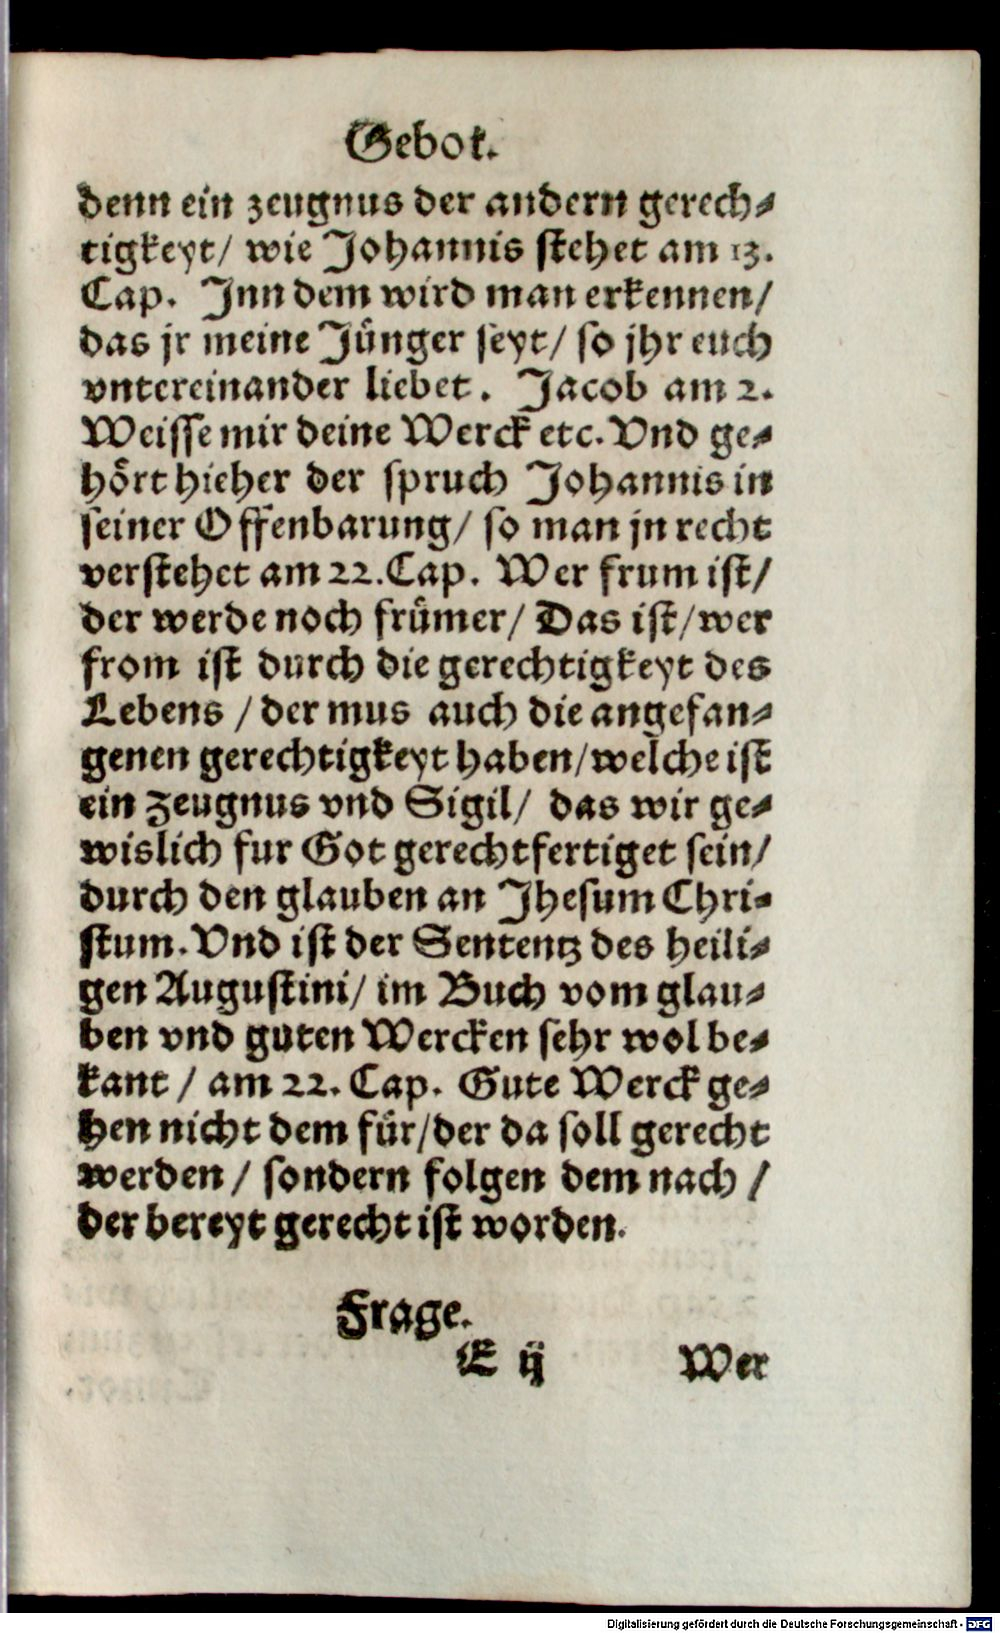 Gebot.
denn ein zeugnus der andern gerech⸗
tigkeyt/ wie Johannis stehet am 13.
Cap. Jnn dem wird man erkennen/
das jr meine Jünger seyt/ so jhr euch
vntereinander liebet. Jacob am 2.
Weisse mir deine Werck etc. Vnd ge⸗
hört hieher der spruch Johannis in
seiner Offenbarung/ so man jn recht
verstehet am 22. Cap. Wer frum ist/
der werde noch frümer/ Das ist/ wer
from ist durch die gerechtigkeyt des
Lebens / der mus auch die angefan⸗
genen gerechtigkeyt haben/ welche ist
ein zeugnus vnd Sigil/ das wir ge⸗
wislich fur Got gerechtfertiget sein/
durch den glauben an Jhesum Chri⸗
stum. Vnd ist der Sententz des heili⸗
gen Augustini/ im Buch vom glau⸗
ben vnd guten Wercken sehr wol be⸗
kant / am 22. Cap. Gute Werck ge⸗
hen nicht dem für/ der da soll gerecht
werden / sondern folgen dem nach /
der bereyt gerecht ist worden.
Frage.
E ij Wer
Digitalisierung gefördert durch die Deutsche Forschungsgemeinschaft - DFG